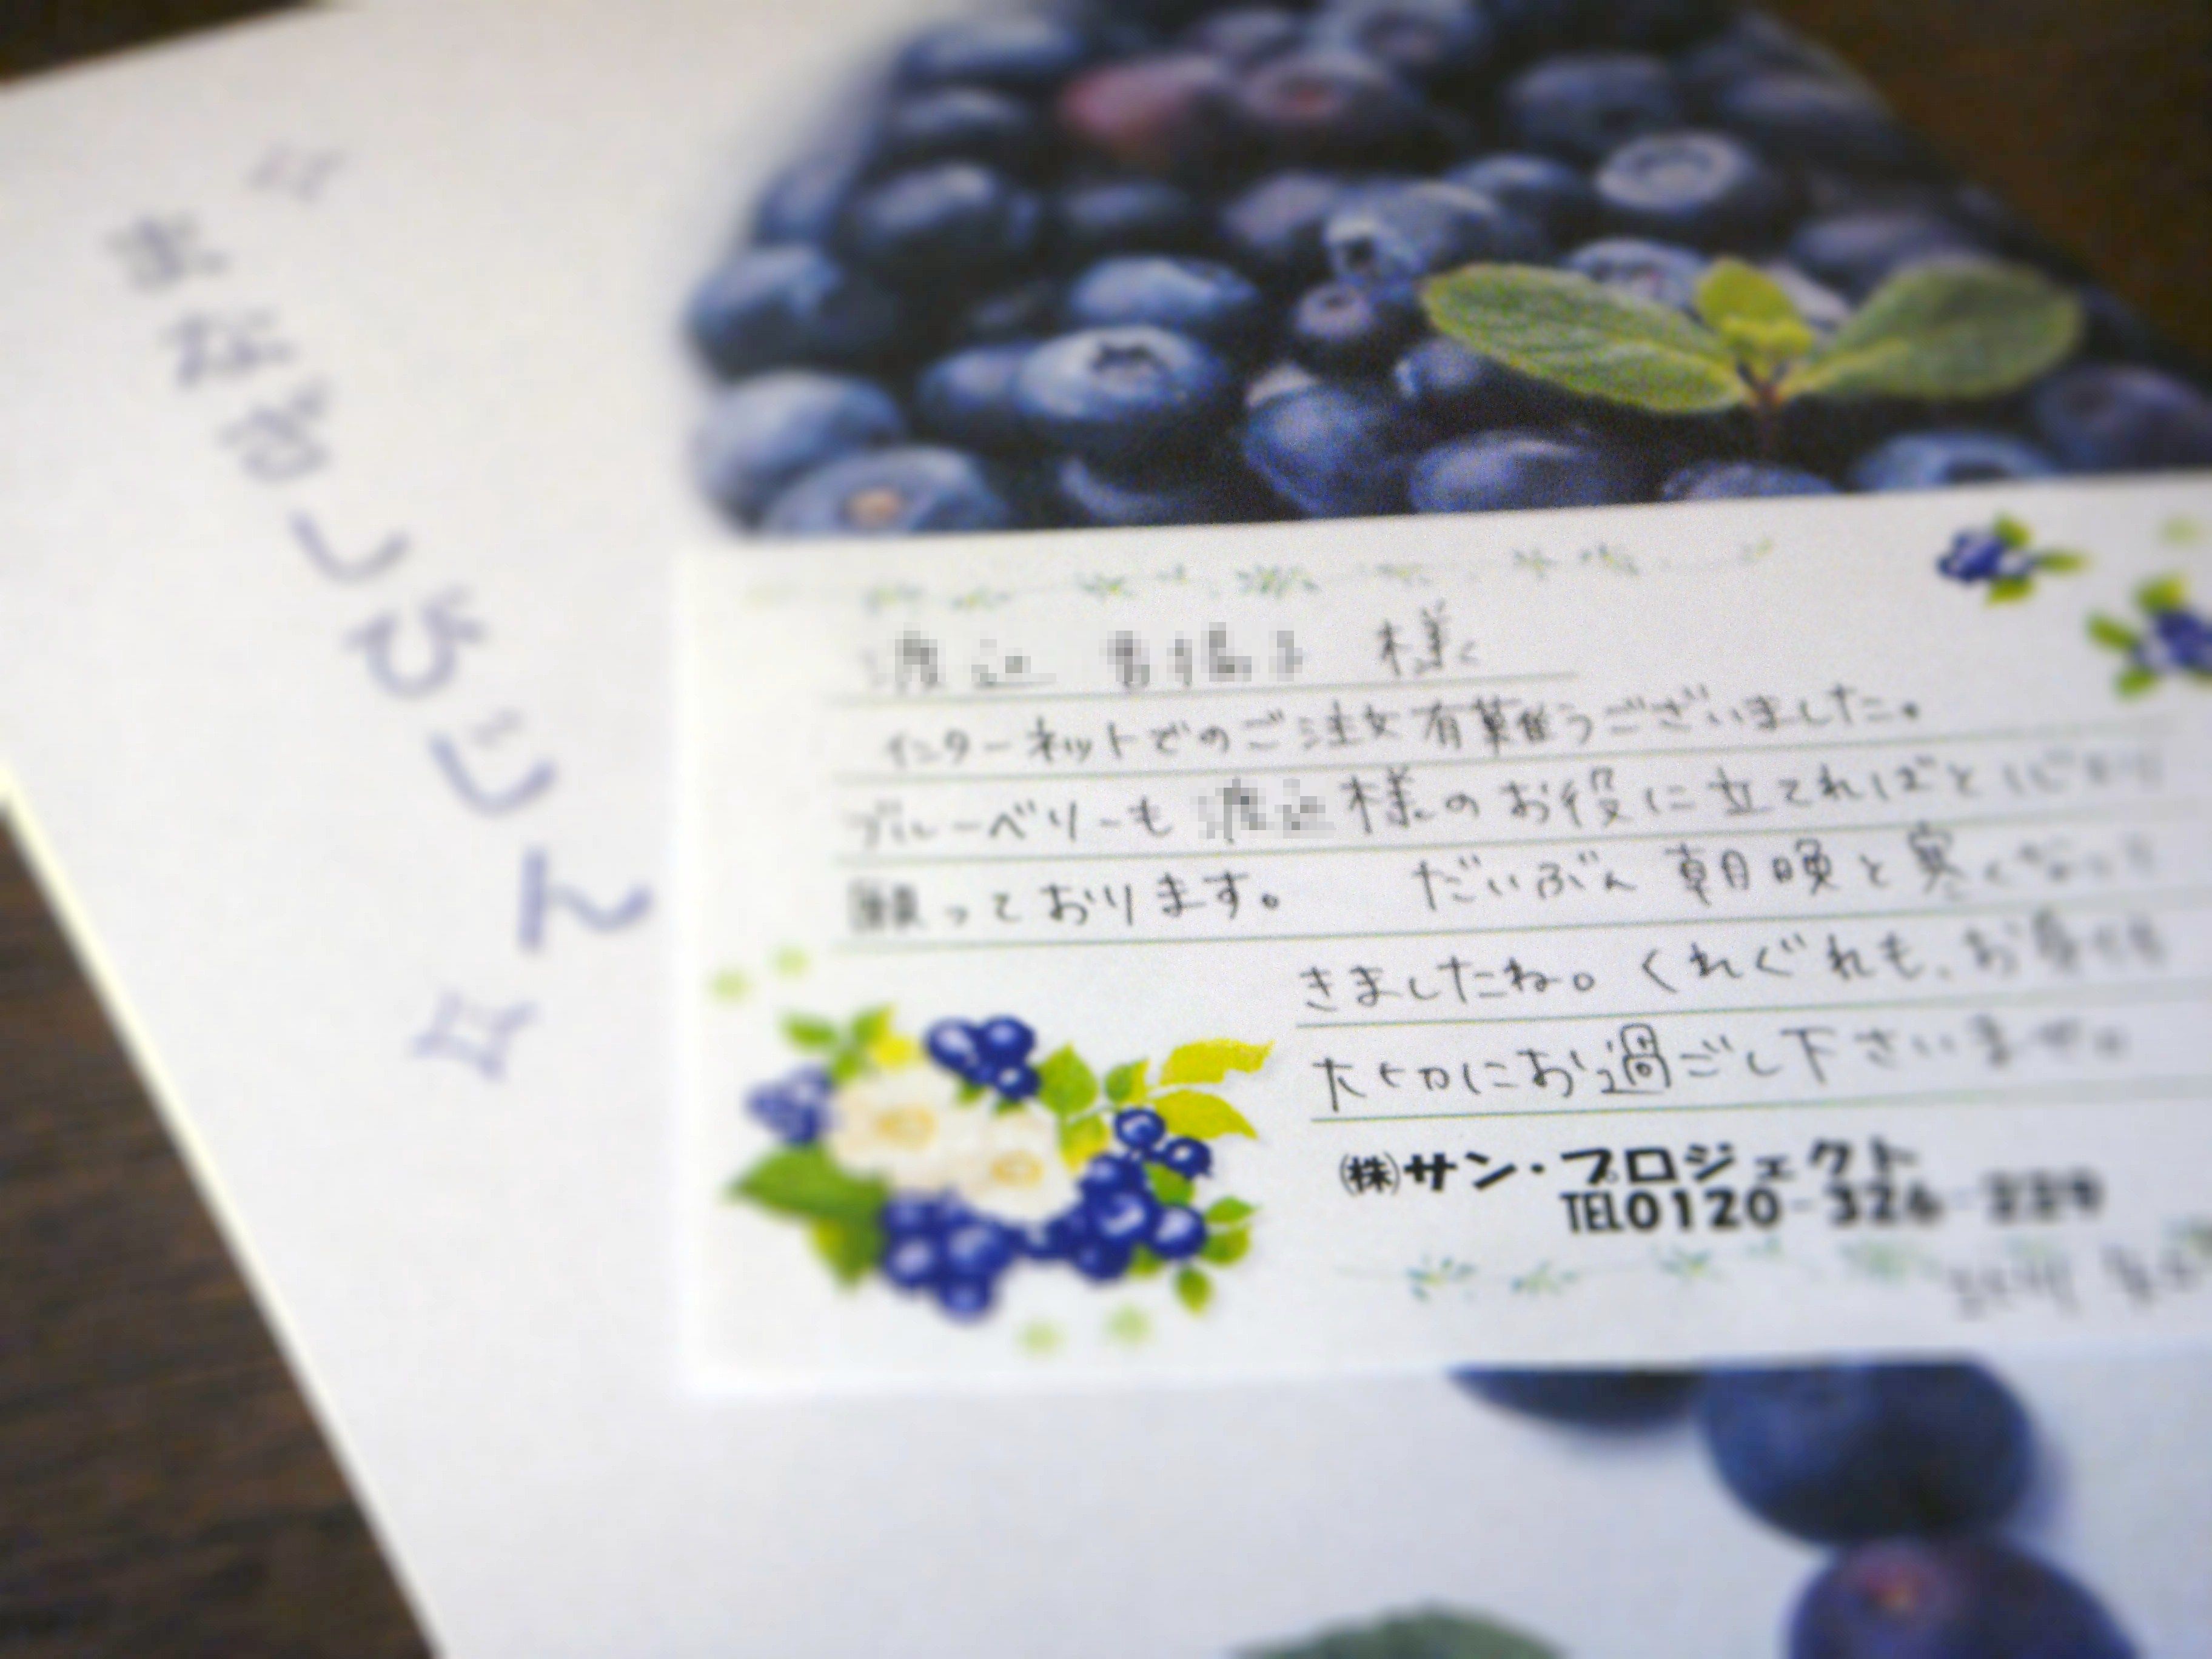 まなざしびじん
様
インターネットでのご注文有難うございました。
ブルーベリーも 様のお役に立てればと
願っております。 だいぶん朝晩と寒くなって
きましたね。くれぐれも、お身体
大切にお過ごし下さいませ。
㈱サン・プロジェクト
TEL0120-326-